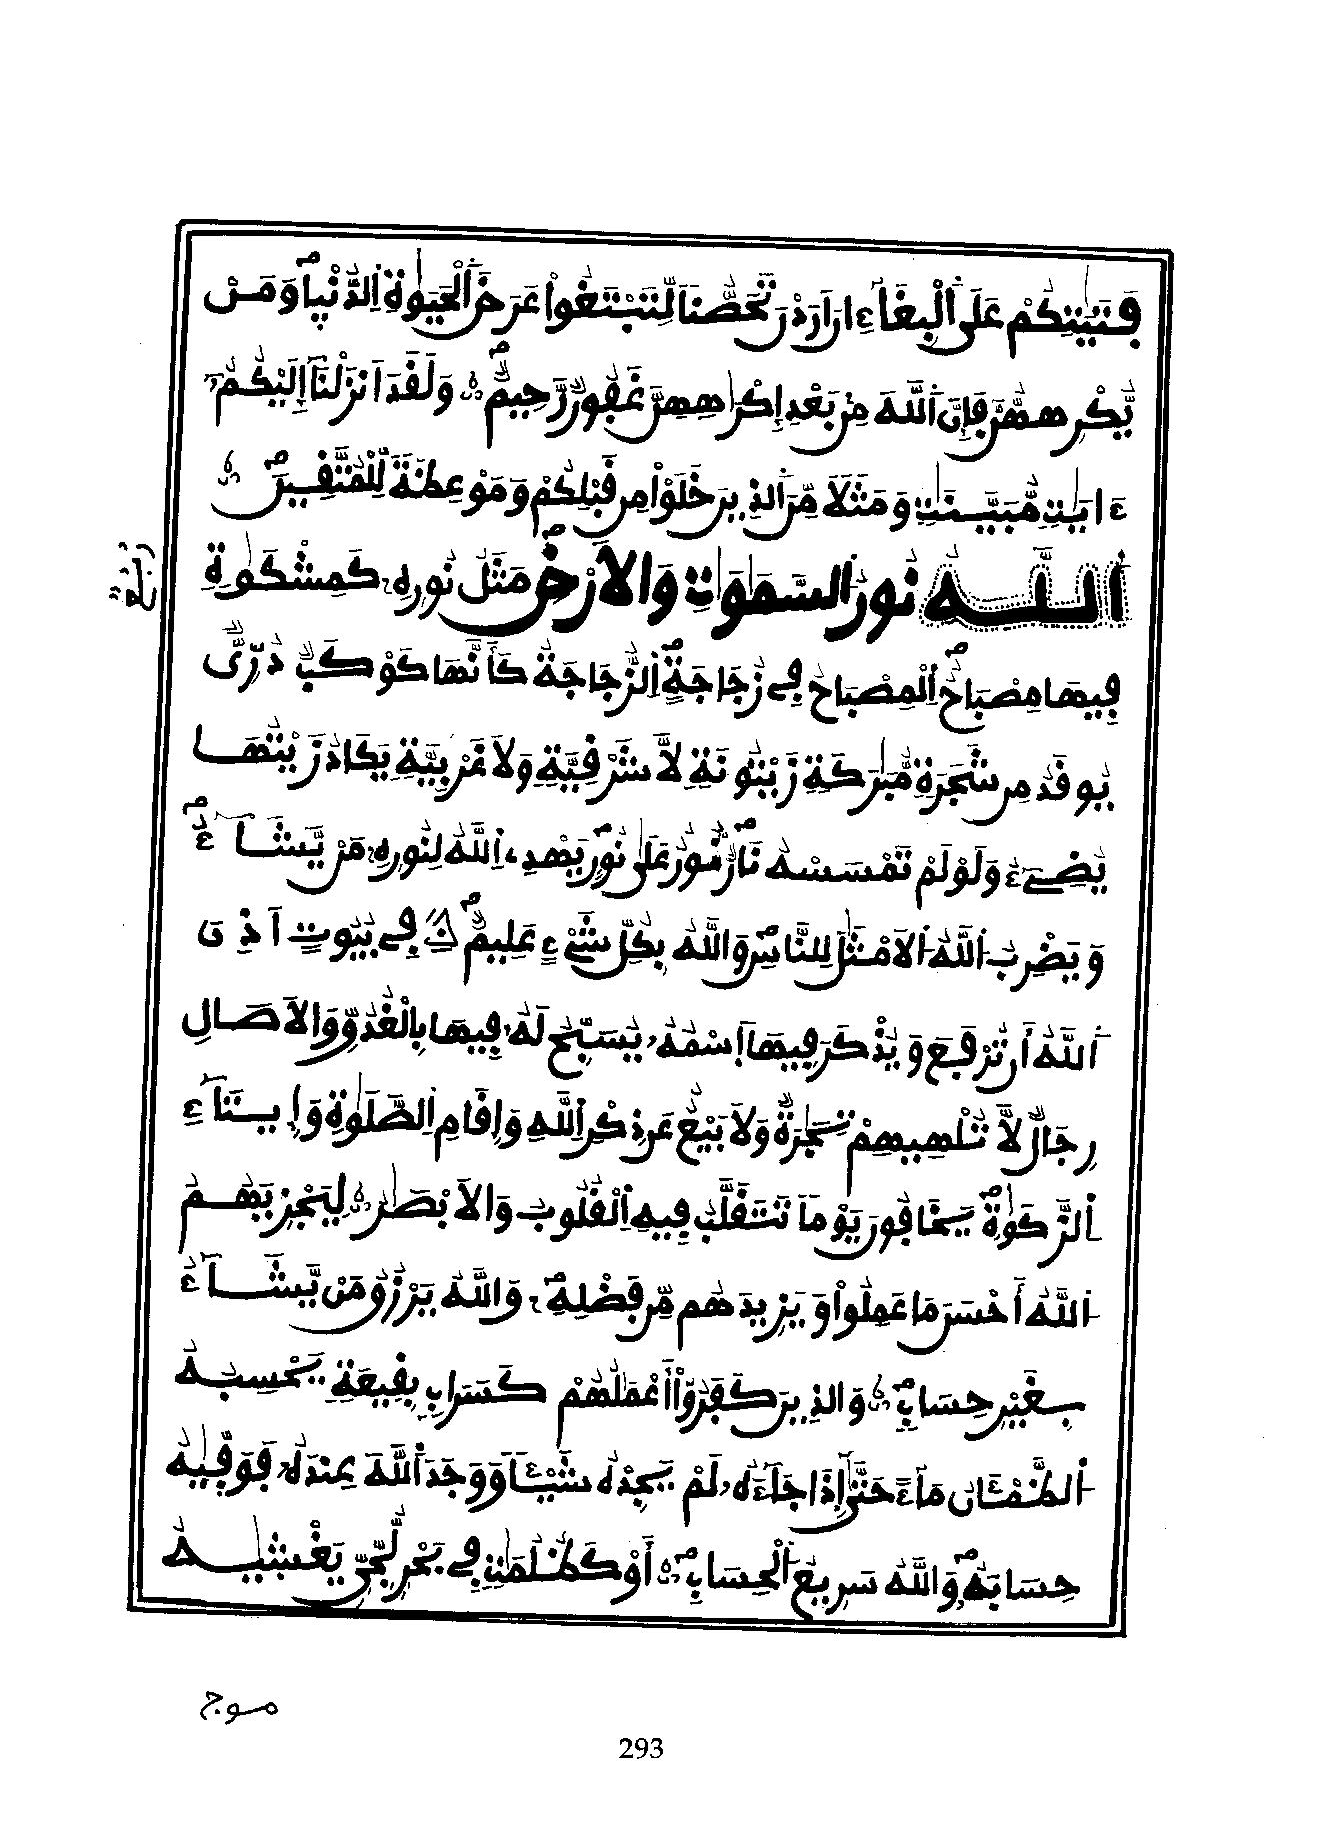 فَتَيَٰتِكُمْ عَلَى اَ۬لْبِغَآءِ انَ اَرَدْنَ تَحَصُّناٗ لِّتَبْتَغُواْ عَرَضَ اَ۬لْحَيَوٰةِ اِ۬لدُّنْيَاۖ وَمَنْ
يُّكْرِههُّنَّ فَإِنَّ اَ۬للَّهَ مِنۢ بَعْدِ إِكْرَٰهِهِنَّ غَفُورٞ رَّحِيمٞۖ وَلَقَدَ اَنزَلْنَآ إِلَيْكُمُۥٓ
ءَايَٰتٖ مُّبَيَّنَٰتٖ وَمَثَلاٗ مِّنَ اَ۬لذِينَ خَلَوْاْ مِن قَبْلِكُمْ وَمَوْعِظَةٗ لِّلْمُتَّقِينَۖ
اَ۬للَّهُ نُورُ اُ۬لسَّمَٰوَٰتِ وَالَارْضِۖ مَثَلُ نُورِهِۦ كَمِشْكَوٰةٖ
فِيهَا مِصْبَاحٌۖ اِ۬لْمِصْبَاحُ فِے زُجَاجَةٍۖ اِ۬لزُّجَاجَةُ كَأَنَّهَا كَوْكَبٞ دُرِّيّٞ
يُوقَدُ مِن شَجَرَةٖ مُّبَٰرَكَةٖ زَيْتُونَةٖ لَّا شَرْقِيَّةٖ وَلَا غَرْبِيَّةٖ يَكَادُ زَيْتُهَا
يُضِےٓءُ وَلَوْ لَمْ تَمْسَسْهُ نَارٞۖ نُّورٌ عَلَىٰ نُورٖۖ يَهْدِے اِ۬للَّهُ لِنُورِهِۦ مَنْ يَّشَآءُۖ
وَيَضْرِبُ اُ۬للَّهُ اُ۬لَامْثَٰلَ لِلنَّاسِۖ وَاللَّهُ بِكُلِّ شَےْءٍ عَلِيمٞۖ فِے بُيُوتٍ اَذِنَ
اَ۬للَّهُ أَن تُرْفَعَ وَيُذْكَرَ فِيهَا اَ۪سْمُهُۥ يُسَبِّحُ لَهُۥ فِيهَا بِالْغُدُوِّ وَالَاصَالِ
رِجَالٞ لَّا تُلْهِيهِمْ تِجَٰرَةٞ وَلَا بَيْعٌ عَن ذِكْرِ اِ۬للَّهِ وَإِقَامِ اِ۬لصَّلَوٰةِ وَإِيتَآءِ
اِ۬لزَّكَوٰةِۖ يَخَافُونَ يَوْماٗ تَتَقَلَّبُ فِيهِ اِ۬لْقُلُوبُ وَالَابْصَٰرُ لِيَجْزِيَهُمُ
اُ۬للَّهُ أَحْسَنَ مَا عَمِلُواْ وَيَزِيدَهُم مِّن فَضْلِهِۦۖ وَاللَّهُ يَرْزُقُ مَنْ يَّشَآءُ
بِغَيْرِ حِسَابٖۖ وَالذِينَ كَفَرُوٓاْ أَعْمَٰلُهُمْ كَسَرَابِۢ بِقِيعَةٖ يَحْسِبُهُ
اُ۬لظَّمْـَٔانُ مَآءً حَتَّىٰٓ إِذَا جَآءَهُۥ لَمْ يَجِدْهُ شَيْـٔاٗ وَوَجَدَ اَ۬للَّهَ عِندَهُۥ فَوَفّيٰهُ
حِسَابَهُۥۖ وَاللَّهُ سَرِيعُ اُ۬لْحِسَابِۖ أَوْ كَظُلُمَٰتٖ فِے بَحْرٖ لُّجِّيّٖ يَغْشَيٰهُ
موج
293